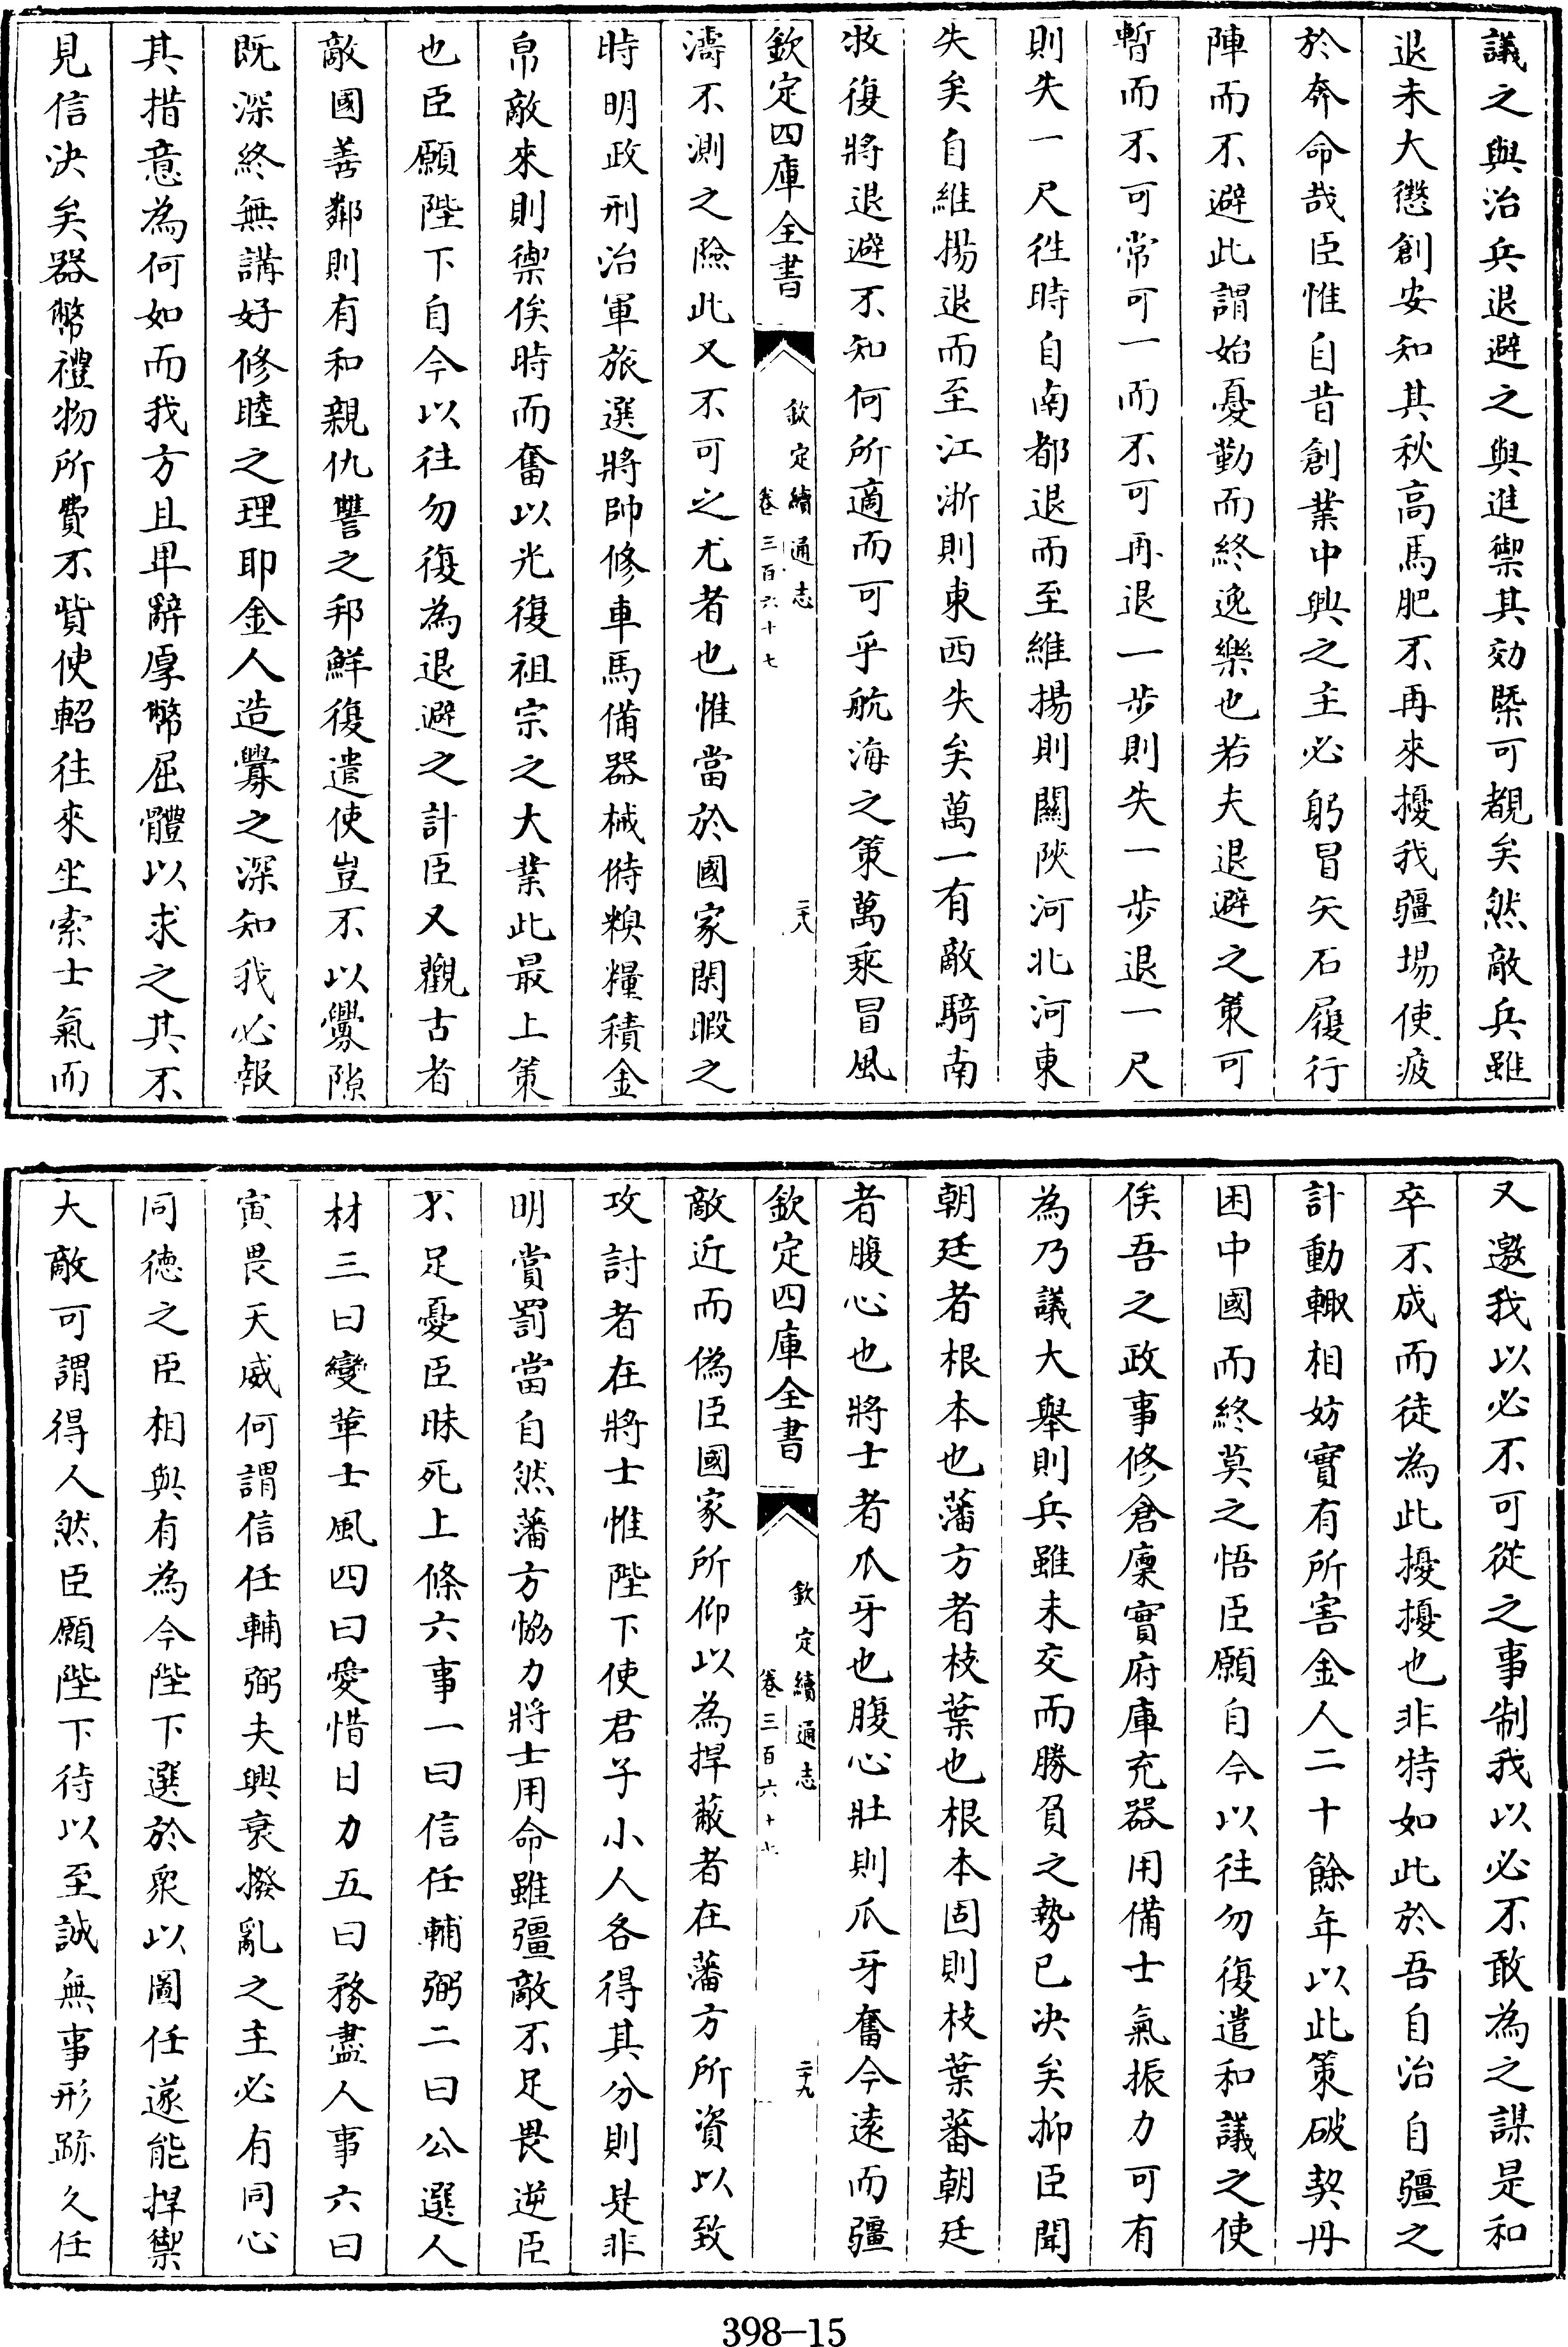 議之與治兵退避之與進禦其効槩可覩矣然敵兵雖
退未大懲創安知其秋高馬肥不再來擾我疆場使疲
於奔命哉臣惟自昔創業中興之主必躬冒矢石履行
陣而不避此謂始憂勤而終逸樂也若夫退避之策可
暫而不可常可一而不可再退一步則失一步退一尺
則失一尺徃時自南都退而至維揚則關陜河北河東
失矣自維揚退而至江浙則東西失矣萬一有敵騎南
牧復將退避不知何所適而可乎航海之策萬乘冒風
欽定四庫全書
欽定續通志
卷三百六十七
二十八
濤不測之險此又不可之尤者也惟當於國家閑暇之
時明政刑治軍旅選將帥修車馬備器械偫糗糧積金
帛敵來則禦俟時而奮以光復祖宗之大業此最上策
也臣願陛下自今以往勿復為退避之計臣又觀古者
敵國善鄰則有和親仇讐之邦鮮復遣使豈不以釁隙
既深終無講好修睦之理耶金人造釁之深知我必報
其措意為何如而我方且卑辭厚幣屈體以求之其不
見信決矣器幣禮物所費不貲使軺往來坐索士氣而
又邀我以必不可從之事制我以必不敢為之謀是和
卒不成而徒為此擾擾也非特如此於吾自治自疆之
計動輙相妨實有所害金人二十餘年以此策破契丹
困中國而終莫之悟臣願自今以往勿復遣和議之使
俟吾之政事修倉廩實府庫充器用備士氣振力可有
為乃議大舉則兵雖未交而勝負之勢已决矣抑臣聞
朝廷者根本也藩方者枝葉也根本固則枝葉蕃朝廷
者腹心也將士者爪牙也腹心壯則爪牙奮今遠而疆
欽定四庫全書
欽定續通志
卷三百六十七
二十九
敵近而偽臣國家所仰以為捍蔽者在藩方所資以致
攻討者在將士惟陛下使君子小人各得其分則是非
明賞罰當自然藩方恊力將士用命雖疆敵不足畏逆臣
不足憂臣昧死上條六事一曰信任輔弼二曰公選人
材三曰變革士風四曰愛惜日力五曰務盡人事六曰
寅畏天威何謂信任輔弼夫興衰撥亂之主必有同心
同徳之臣相與有為今陛下選於衆以圖任遂能捍禦
大敵可謂得人然臣願陛下待以至誠無事形跡久任
398-15